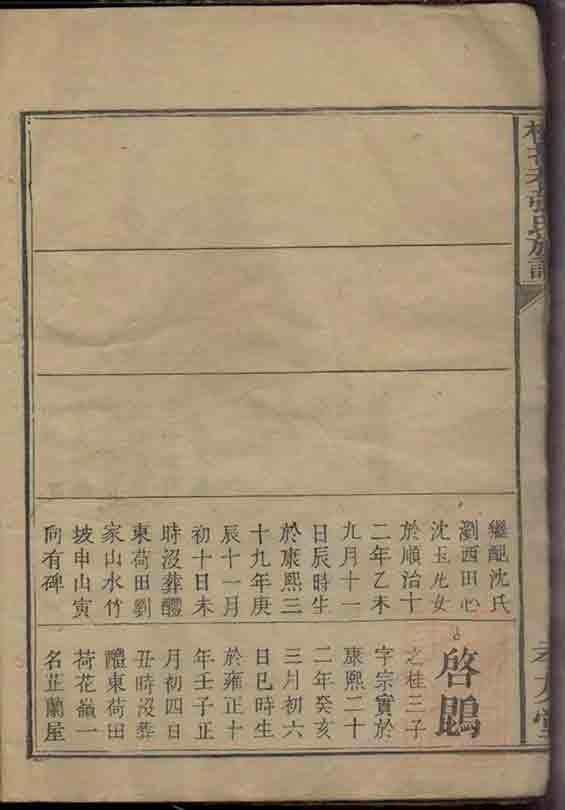 張氏族譜
繼配沈氏
瀏西田心
沈玉先女
於順治十
二年乙未
九月十一
日辰時生
於康熙三
十九年庚
辰十一月
初十日未
時沒葬醴
東荷田劉
家山水竹
坡申山寅
向有碑
啓鵾
之桂三子
字宗實於
康熙二十
二年癸亥
三月初六
日巳時生
於雍正十
年壬子正
月初四日
丑時沒葬
醴東荷田
荷花嶺一
名芷蘭屋